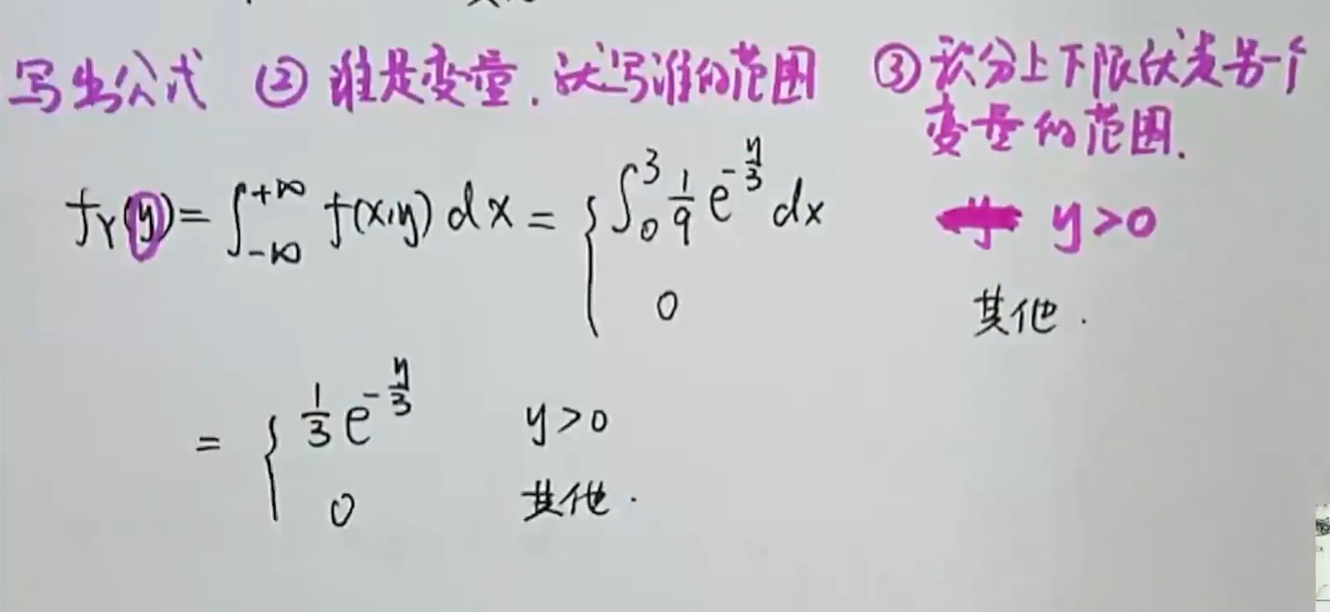 写出公式 ② 谁是变量,就写谁的范围 ③ 积分上下限代表另一个
变量的范围.
f_Y(y) = ∫_{-∞}^{+∞} f(x,y) dx = { ∫_0^3 \frac{1}{9} e^{-\frac{y}{3}} dx y>0
0 其他.
= { \frac{1}{3} e^{-\frac{y}{3}} y>0
0 其他.